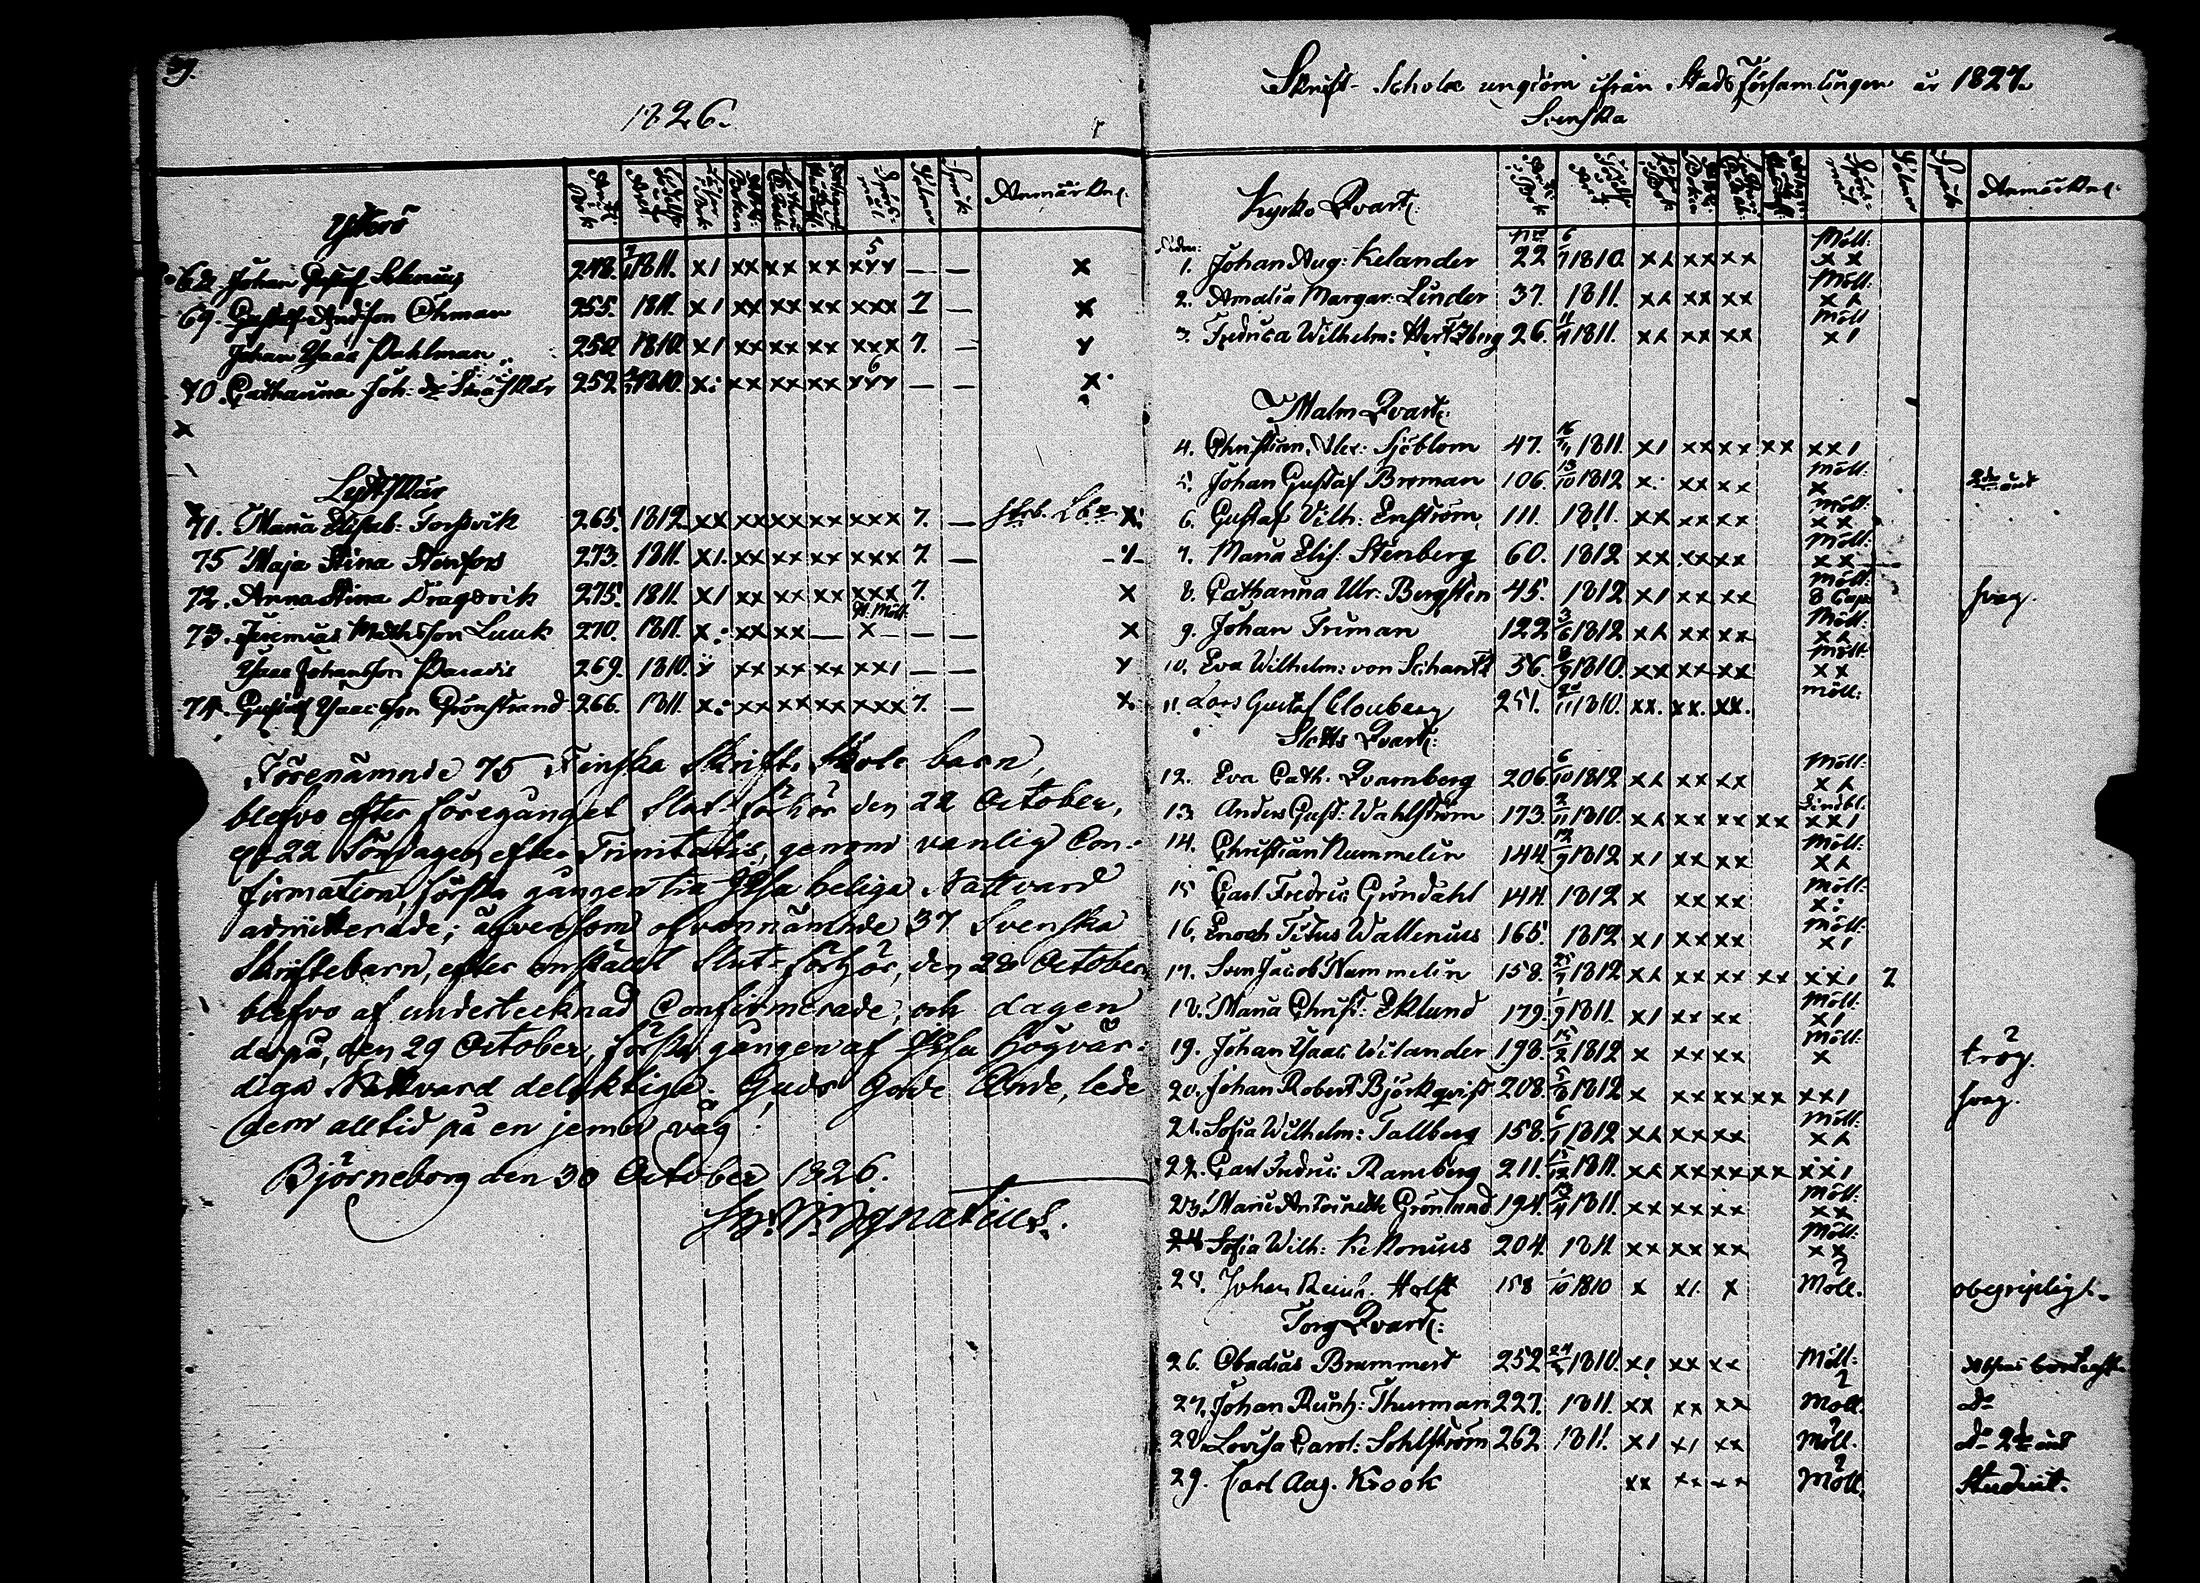 1826.
Anmärkn:
Ytterö
68. Johan Gustaf Selenius 248. 1811. x1 xx xx xx xyy 5 — — x
69. Gustaf Andsson Öhman 255. 1811. x1 xx xx xx xxx 7 — x
Johan Isaac Pahlman 250 1810 x1 xx xx xx xxx 7. — y
70. Catharina Joh: dr 252 1810. x: xx xx xx yyy 6 — — x
x
71. Maria Elisab: Torsvik 265. 1812 xx xx xx xx xxx 7. — x
75 Maja Stina Stenfors 273. 1811. x1. xx xx xx xxx 7. —
72. Anna Stina Dragsvik 275. 1811. x1 xx xx xx xxx 7. x
73. Jeremias Mathsson Luuk 270. 1811. x: xx xx — x — — — x
Isaac Johansson Paravis 269. 1810. y xx xx xx xx1 — — y
74. Gustaf Isaacsson Grönstrand 266. 1811. x: xx xx xx xxx 7. — x
Förenämnde 75 Finska Skrift-Skole barn,
blefvo efter föregånget Slut-förhör den 22 October,
22 Söndagen efter Trinitatis, genom vanlig Con-
firmation, första gången tra Jesu heliga Nattvard
admitterade; äfvensom ofvannämnde 37 Svenska
Skriftebarn, efter anstäldt Slut-förhör, den 28 October
blefvo af undertecknad Confirmerade, och dagen
derpå, den 29 October, första gången af Jesu högvär-
diga Nattvard delaktiga. Guds Gode Ande, lede
dem alltid på en jemn väg!
Björneborg den 30 October 1826.
Ignatius.
Skrift-Schole ungdom ifrån StadsFörsamlingen år 1827.
Svenska
Kyrko Qvart: Anmärkn:
1. Johan Aug: Kelander 22 6/7 1810. xx xx xx Möll: x x
2. Amalia Margar: Linder 37. 1811. xx xx xx Möll: x x
3. Fredrica Wilhelm: Hertzberg 26. 1811. xx xx xx Möll x1
Malm Qvart:
4. Christian Alex: Sjöblom 47. 1811. x1 xx xx xx xx1
5. Johan Gustaf Broman 106. 13/10 1812 x. xx xx Möll: x
6. Gustaf Vilh: Enström 111. 1811. xx xx xx Möll: x x
7. Maria Elis: Stenberg 60. 1812 xx xx xx Möll: x x
8. Catharina Ulr: Bergsten 45. 1812 x1 xx xx Möll: 8 Cap: svag.
9. Johan Friman 122 3/6 1812 xx xx xx Möll: x x
10. Eva Wilhelm: von Schantz 56. 8/9 1810. xx xx xx Möll: x x
11. Lars Gustaf Clouberg 251. 1810. xx. xx. xx. Möll:
Slotts Qvart:
12. Eva Cath: Qvarnberg 206 6/10 1812 xx xx xx Möll: x x
13. Anders Gust: Wahlström 173. 2/11 1810. xx xx xx xx Lindbl. xx1
14. Christian Nummelin 144 1812 x1 xx xx Möll: x x
15 Carl Fredric Gröndahl 144. 1812 x xx xx Möll: x:
16. Enoch Titus Wallenius 165. 1812 x1 xx xx Möll: x1
17. Sven Jacob Nummelin 158. 1812 xx xx xx xx xx1 7
18. Maria Christ: Eklund 179. 1811. x1 xx xx Möll: x1
19. Johan Isaac Wilander 198. 15/2 1812 x xx xx Möll: x trög.
20. Johan Robert Björkqvist 208. 1812 x xx xx xx xx1 svag.
21. Sofia Wilhelm: Tallberg 158. 1812 xx xx xx Möll: x x
22. Carl Fredric Ramberg 211. 1811. xx xx xx xx xx1
23. Marie Antoinette Grönlund 194. 1811. xx xx xx Möll: xx
24 Sofia Wilh: Kekonius 204. 1811 xx xx xx Möll: xx
25. Johan Reinh. Holst 158 1/10 1810 x x1. x 2 Möll. obegripligt.
Torg Qvart:
26. Obadias Brummert 252 1810. x1 xx xx Möll:
27. Johan Reinh: Thurman 227. 1811. xx xx xx 2 Möll. do
28. Lovisa Carol: Sohlström 262 1811. x1 x1 xx 2 Möll. do
29. Carl Aug. Krook xx xx xx 2 Möll. Student.